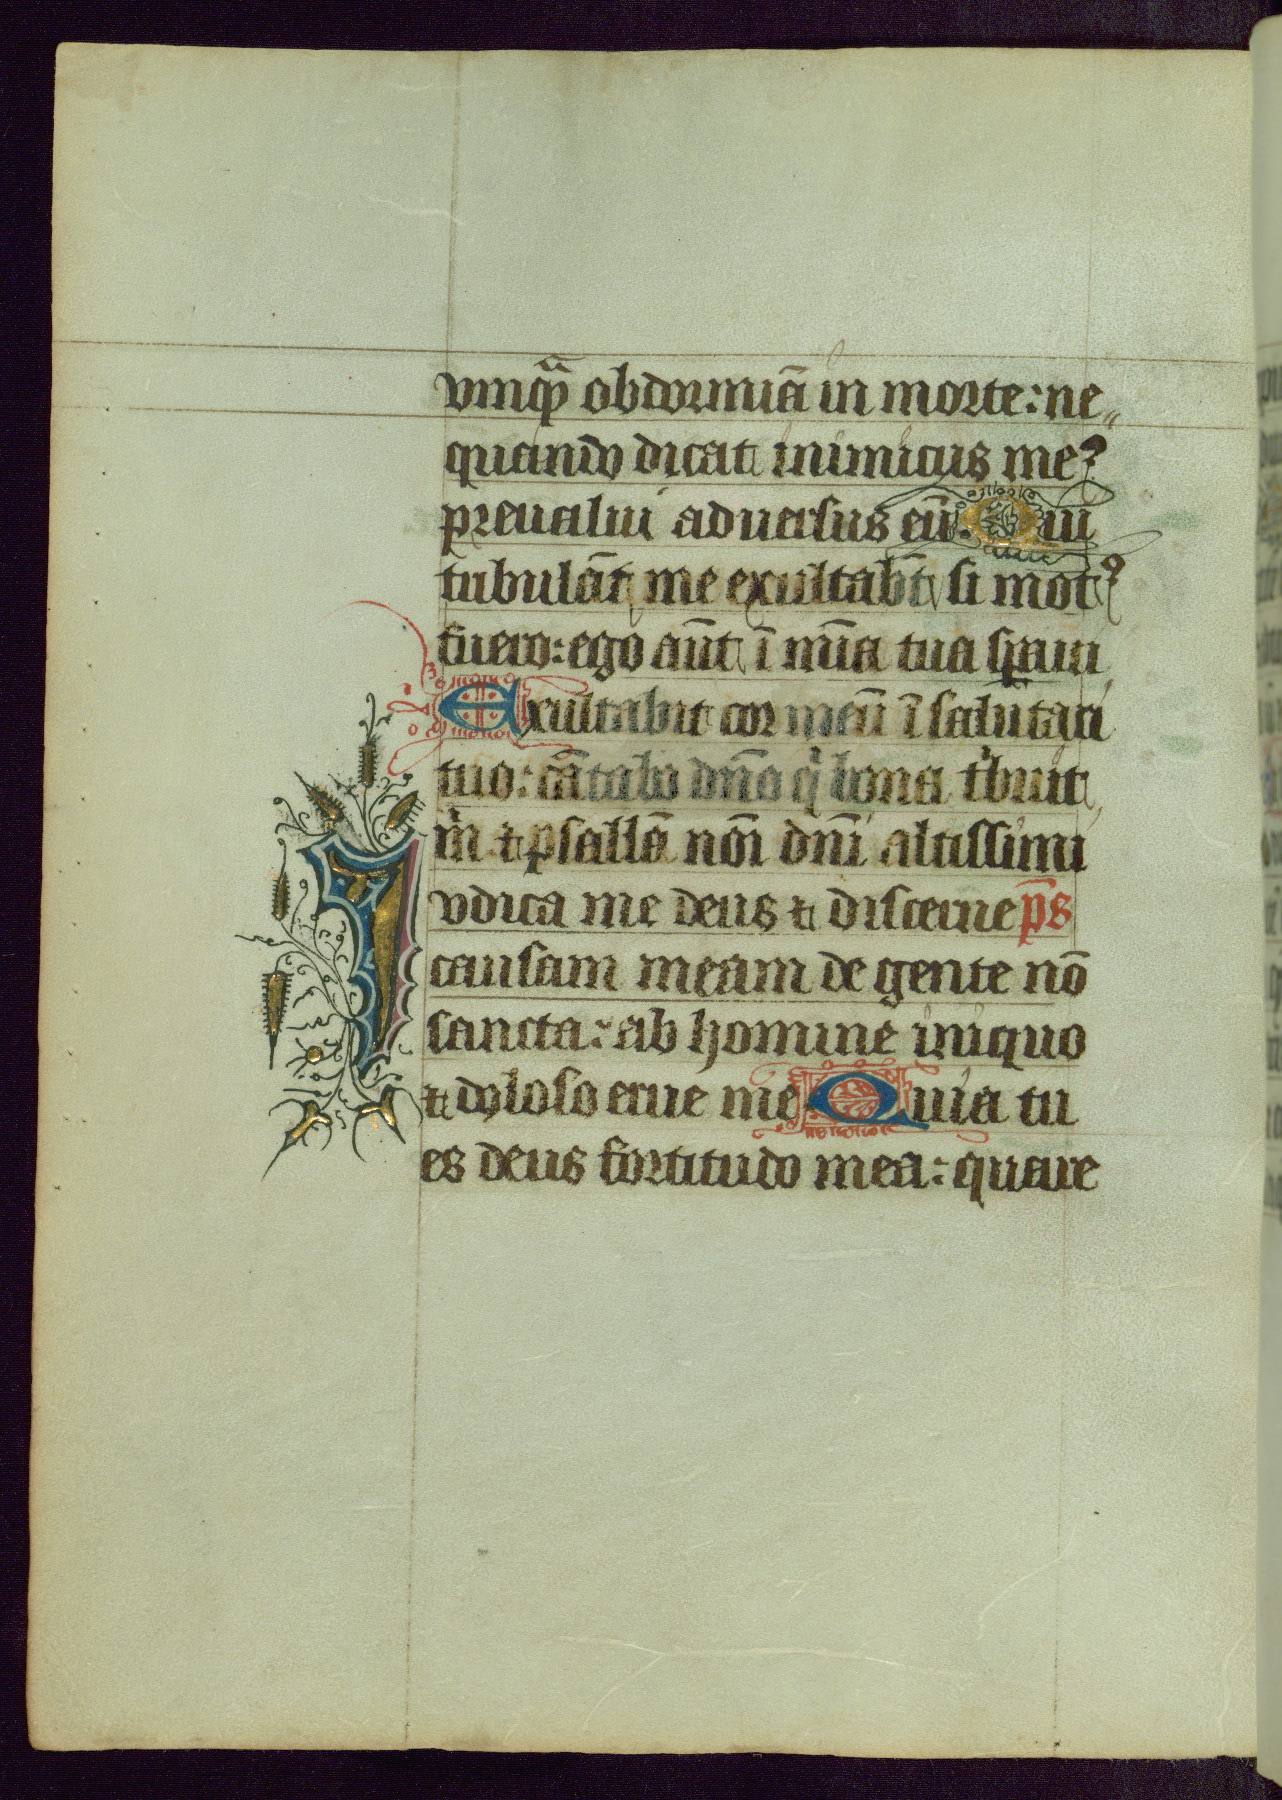 vmqͣ obdormiā in morte: ne„
quando dicat inimicus meꝰ
preualui aduersus eū. Qui
tribulāt me exultabt̄ si motꝰ
fuero: ego aūt ī mīa tua sꝑaui
Exultabit cor meū ī salutari
tuo: cātabo dn̄o qͥ bona tͥbuit
mͥ ⁊ psallā noī dn̄i altissimi
Iudica me deus ⁊ discerne p̄s
causam meam de gente nō
sancta: ab homine iniquo
⁊ doloso erue me Quia tu
es deus fortitudo mea: quare